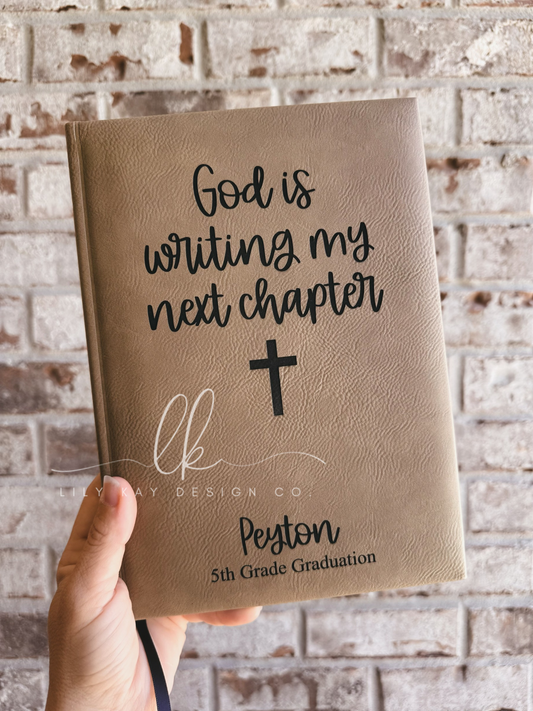 God is
writing my
next chapter
lk
LILY KAY DESIGN CO.
Peyton
5th Grade Graduation